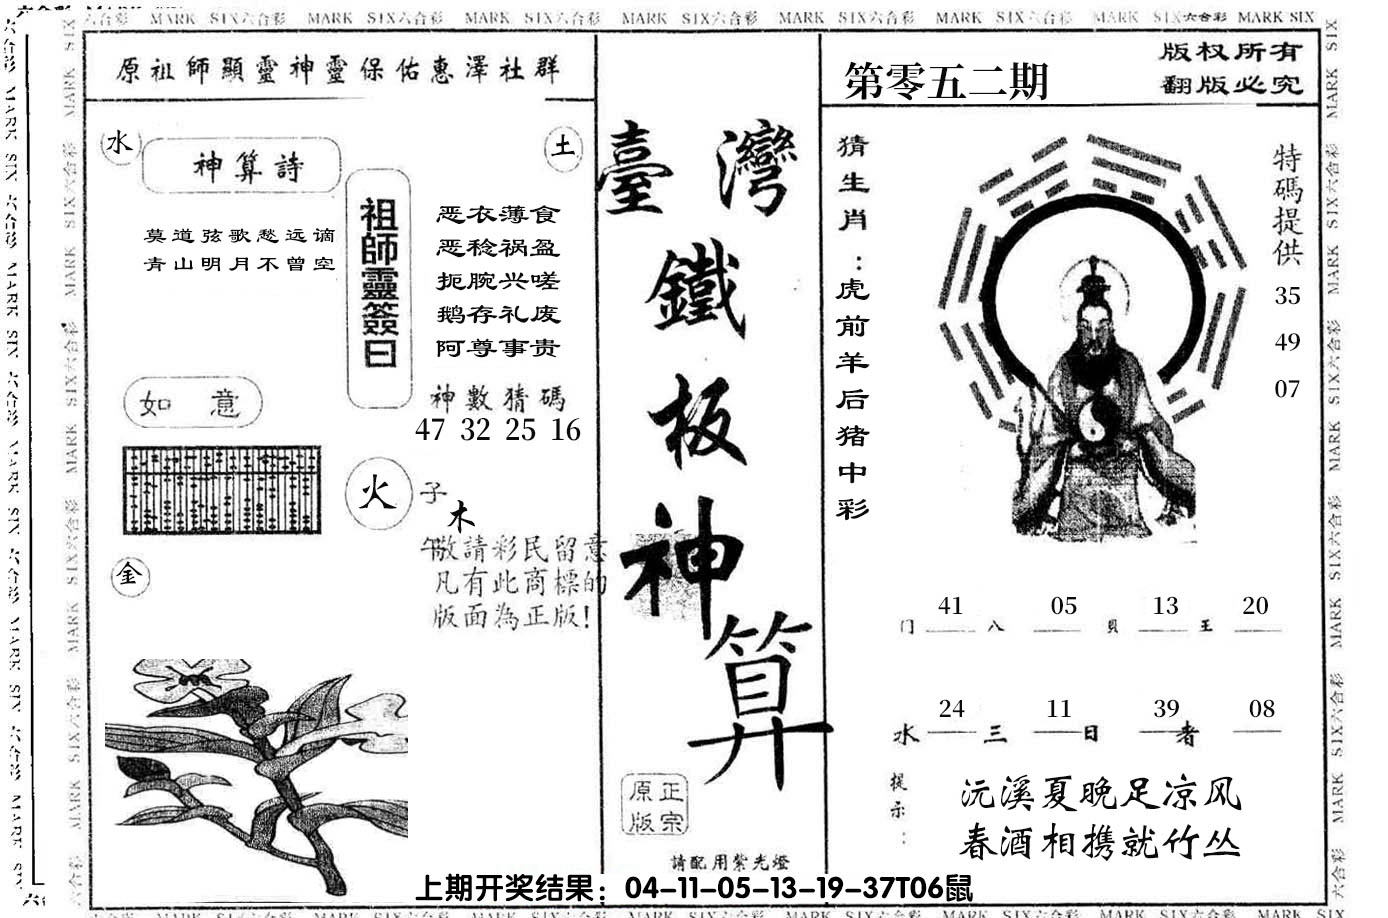 MARK SIX六合彩 MARK SIX六合彩 MARK SIX六合彩 MARK SIX六合彩 MARK SIX六合彩 MARK SIX六合彩 MARK SIX六合彩 MARK SIX
原祖師顯靈神靈保佑惠澤社群
水
神算詩
莫道弦歌愁远谪
青山明月不曾空
土
祖師靈簽曰
恶衣薄食
恶稔祸盈
扼腕兴嗟
鹅存礼废
阿尊事贵
神數猜碼
47 32 25 16
如意
火
子
木
午
敬請彩民留意
凡有此商標的
版面為正版!
金
臺灣
鐵
板
神
算
正宗
原版
請配用紫光燈
第零五二期
版权所有
翻版必究
猜生肖:虎前羊后猪中彩
特碼提供
35
49
07
门 41 八 05 貝 13 王 20
水 24 三 11 日 39 者 08
提示:
沅溪夏晚足凉风
春酒相携就竹丛
上期开奖结果：04-11-05-13-19-37T06鼠